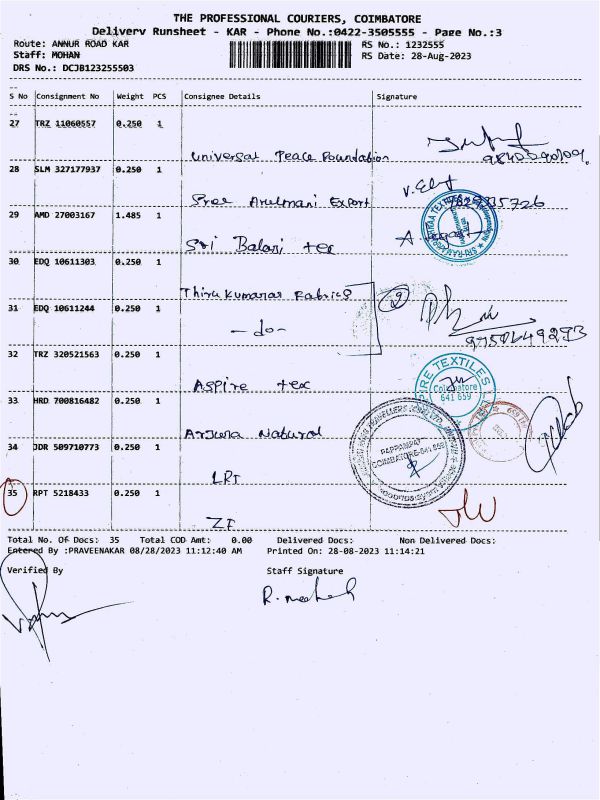 THE PROFESSIONAL COURIERS, COIMBATORE
Delivery Runsheet - KAR - Phone No.:0422-3505555 - Page No.:3
Route: ANNUR ROAD KAR RS No.: 1232555
Staff: MOHAN RS Date: 28-Aug-2023
DRS No.: DCJB123255503
S No Consignment No Weight PCS Consignee Details Signature
27 TRZ 11060557 0.250 1
Universal Peace Foundation
28 SLM 327177937 0.250 1
Sree Arulmani Export
29 AMD 27003167 1.485 1
Sri Balaji tex
30 EDQ 10611303 0.250 1
Thirukumaran Fabrics 2
31 EDQ 10611244 0.250 1
-do-
32 TRZ 320521563 0.250 1
Aspire tex
TEXTILES
Coimbatore
641 659
33 HRD 700816482 0.250 1
Arjuna Natural
COIMBATORE-641 659
34 JDR 509710773 0.250 1
LRT
35 RPT 5218433 0.250 1
ZF
Total No. Of Docs: 35 Total COD Amt: 0.00 Delivered Docs: Non Delivered Docs:
Entered By :PRAVEENAKAR 08/28/2023 11:12:40 AM Printed On: 28-08-2023 11:14:21
Verified By Staff Signature